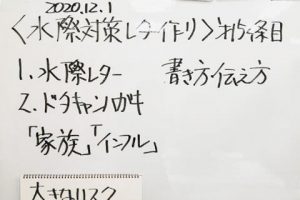 2020.12.1
〈水際対策レター作り〉第15条目
1. 水際レター 書き方伝え方
2. ドタキャン
「家族」「インフル」
大きなリスク